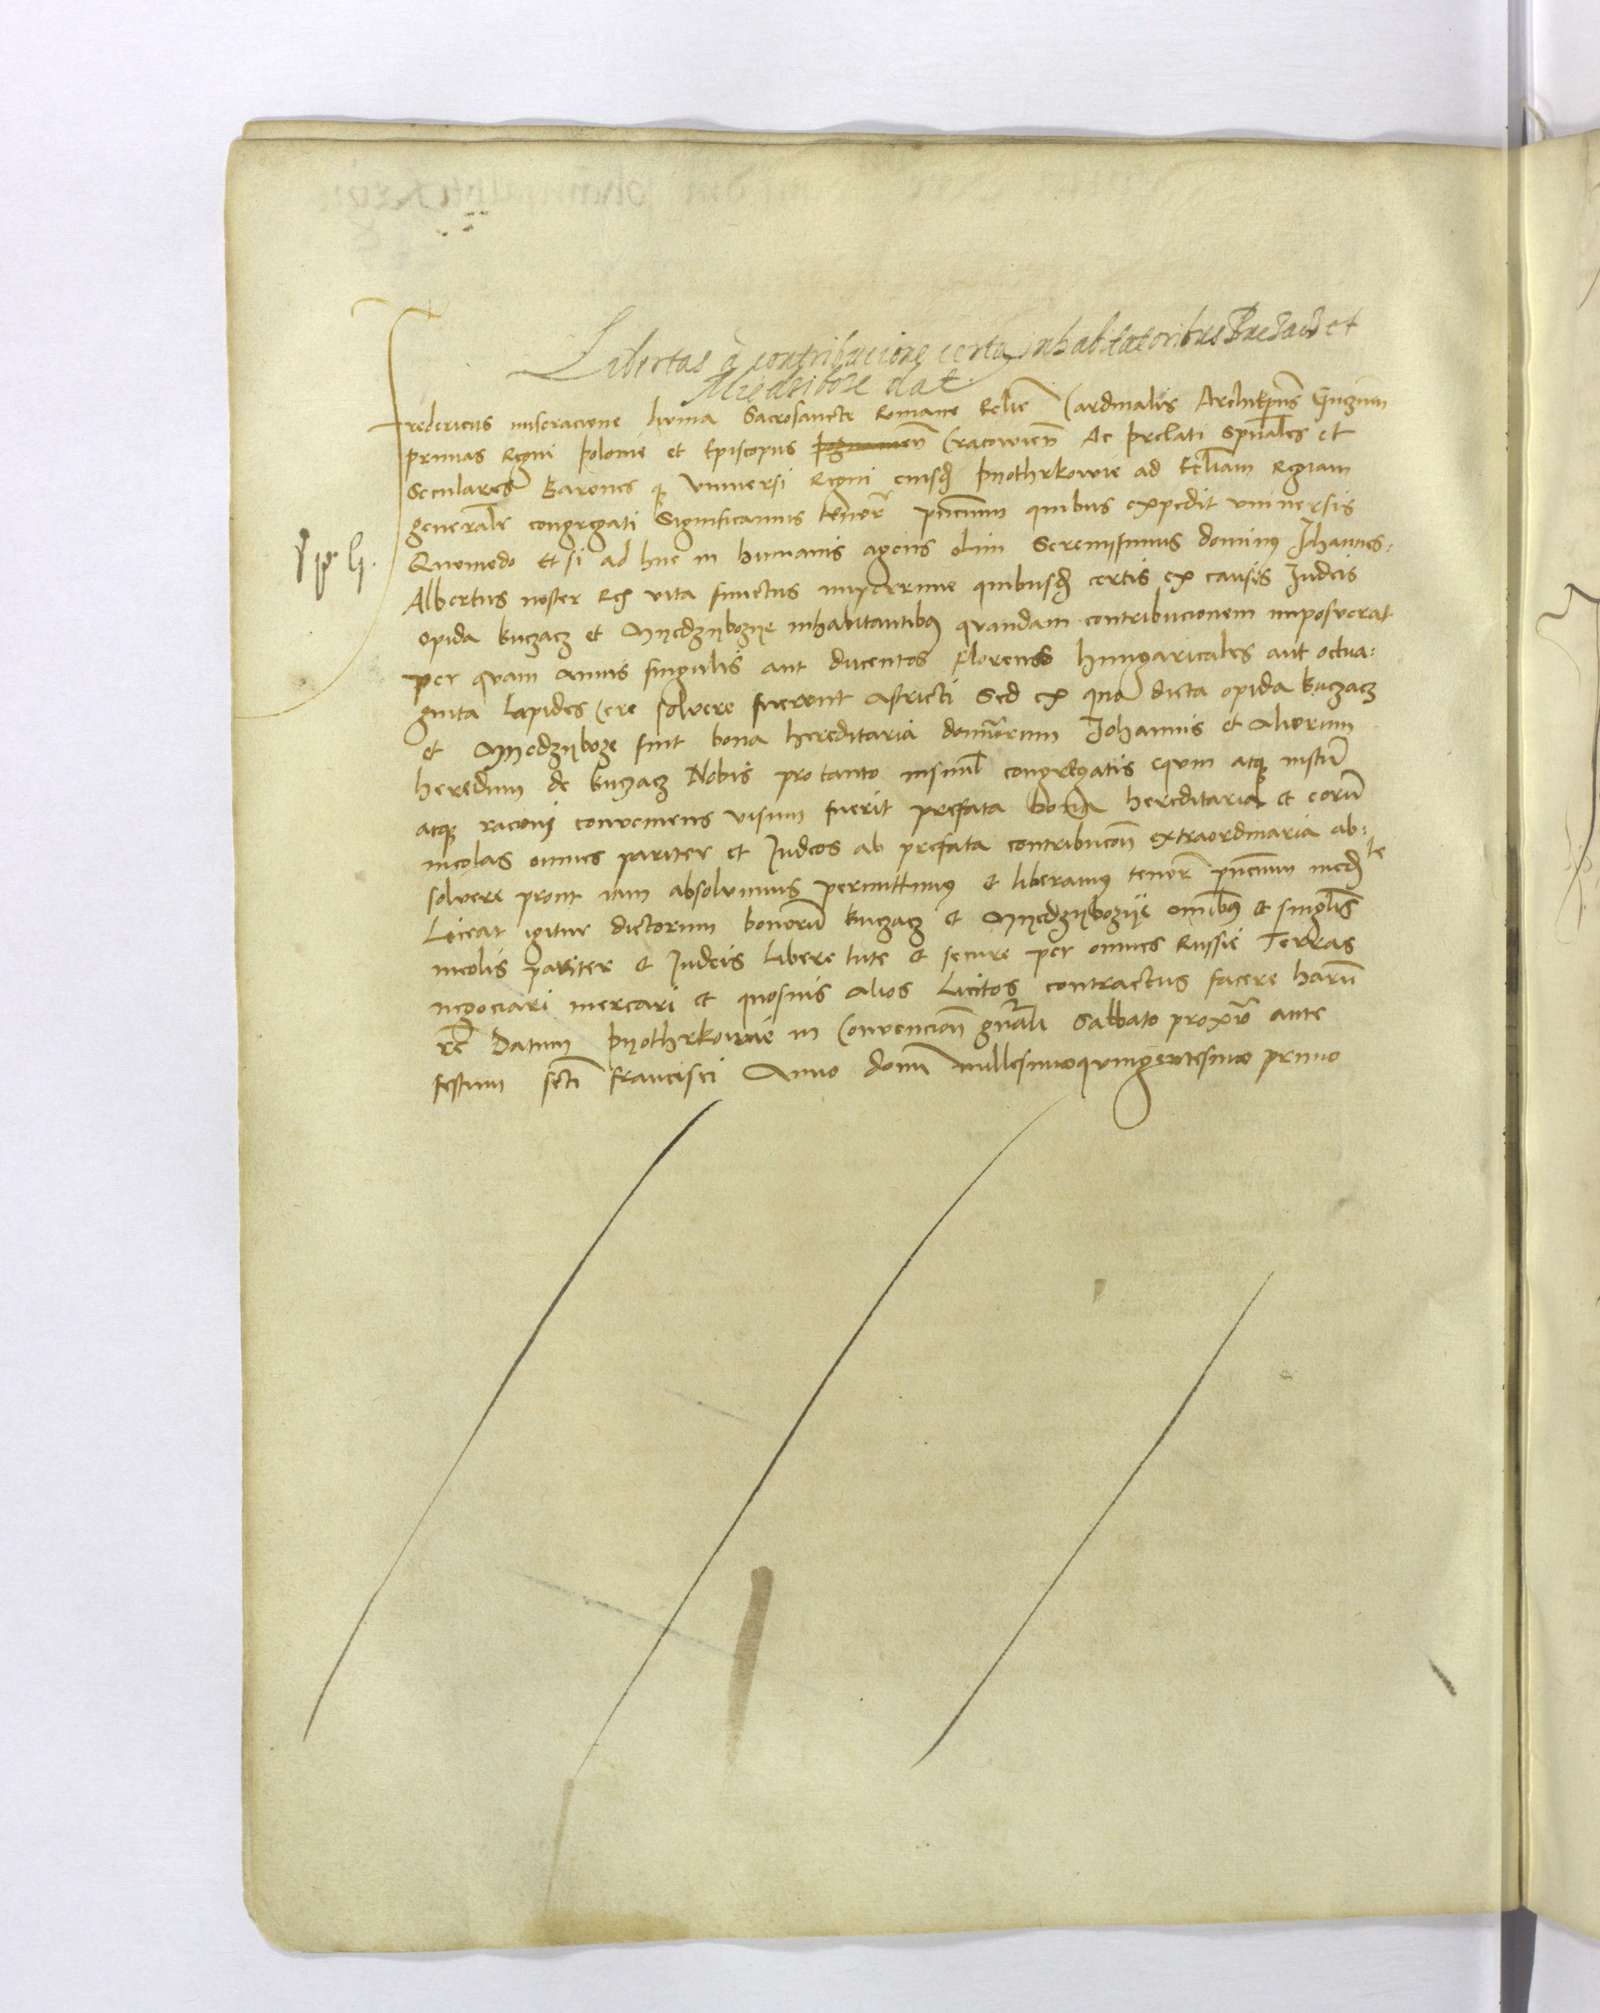 Libertas à contribucione certa inhabitatoribus Buczacz et
Miedziboze dat
Fredericus miseracione divina Sacrosancte Romane Eclie Cardinalis Archiepus Gnznen
primas Regni polonie et Episcopus Cracovien Ac prelati Spuales et
Seculares Barones q universi Regni eiusd pyothrkowie ad Eleciam Regiam
generale congregati Significamus tenore pncium quibus expedit universis
Quomodo Et si ad huc in humanis agens olim Serenissimus dominus Johannes
Albertus noster Rex vita functus nuperrime quibusd certis ex causis Judeis
opida buczacz et Myedzyboze inhabitantibus quandam contribucionem imposuerat
per quam annis singulis aut ducentos florenos hungaricales aut octua:
ginta Lapides Cere solvere fuerunt astricti Sed ex quo dicta opida buczacz
et Myedzyboze sint bona hereditaria dominorum Johannis et Aliorum
heredum de buczacz Nobis pro tanto insimul congregatis equm atq iustum
atq racioni conveniens visum fuerit prefata bona hereditaria et eorum
incolas omnes pariter et Judeos ab prefata contribucoe extraordinaria ab:
solvere prout iam absolvimus permittimus et liberamus tenore pncium medte
Liceat igitur dictorum bonorum buczacz et Myedzyboze omnibus et singulis
incolis pariter et Judeis libere tute et secure per omnes Russie Terras
negociari mercari et quosvis alios licitos contractus facere harum
rc Datum pyothrkowie in Convencione gnali Sabbato proxio ante
festum scti francisci Anno domi millesimoquingentesimo primo